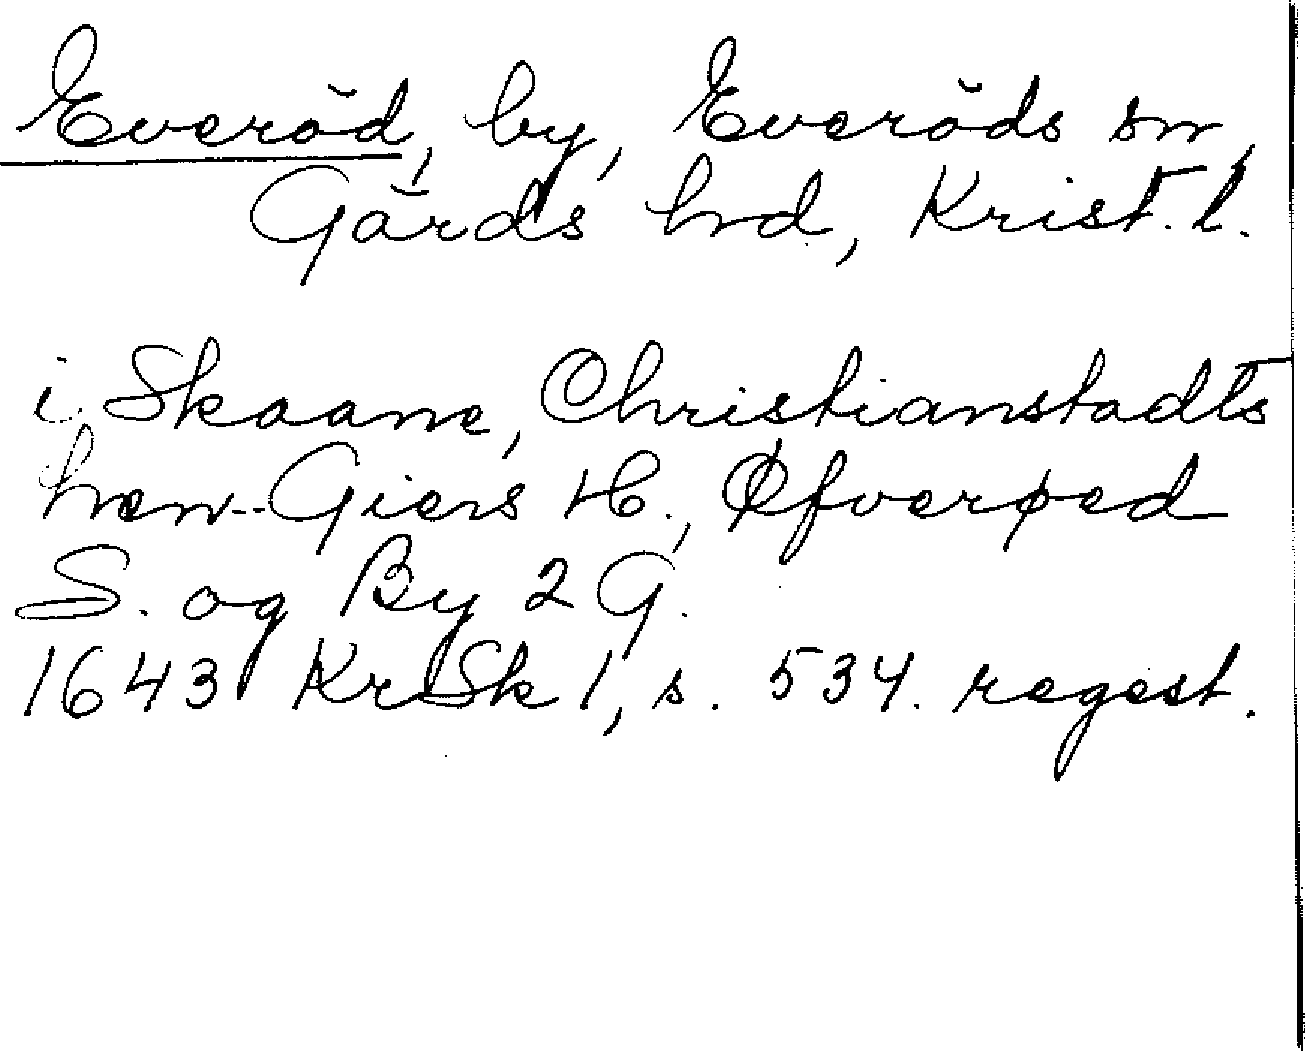 Everöd, by, Everöds sn,
Gärds hrd, Krist. l.
i Skaane, Christianstadts
hæn-Giers H., Øfverøed
S. og By 2 G.
1643 KrSk 1, s. 534. regest.